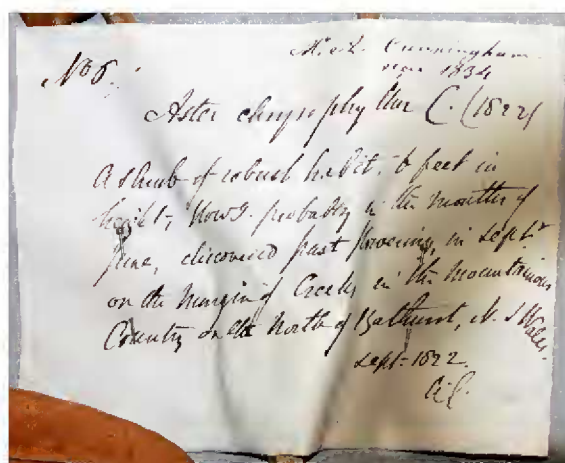 Cunningham
1834
No 6.
Aster chrysophyllus C. (1822)
A shrub of robust habit. 6 feet in
height, flowg. probably in the months of
June, discovered past flowering, in Septr.
on the margin of Creeks in the mountainous
Country on the North of Bathurst, N. S Wales.
Sept. 1822.
A.C.